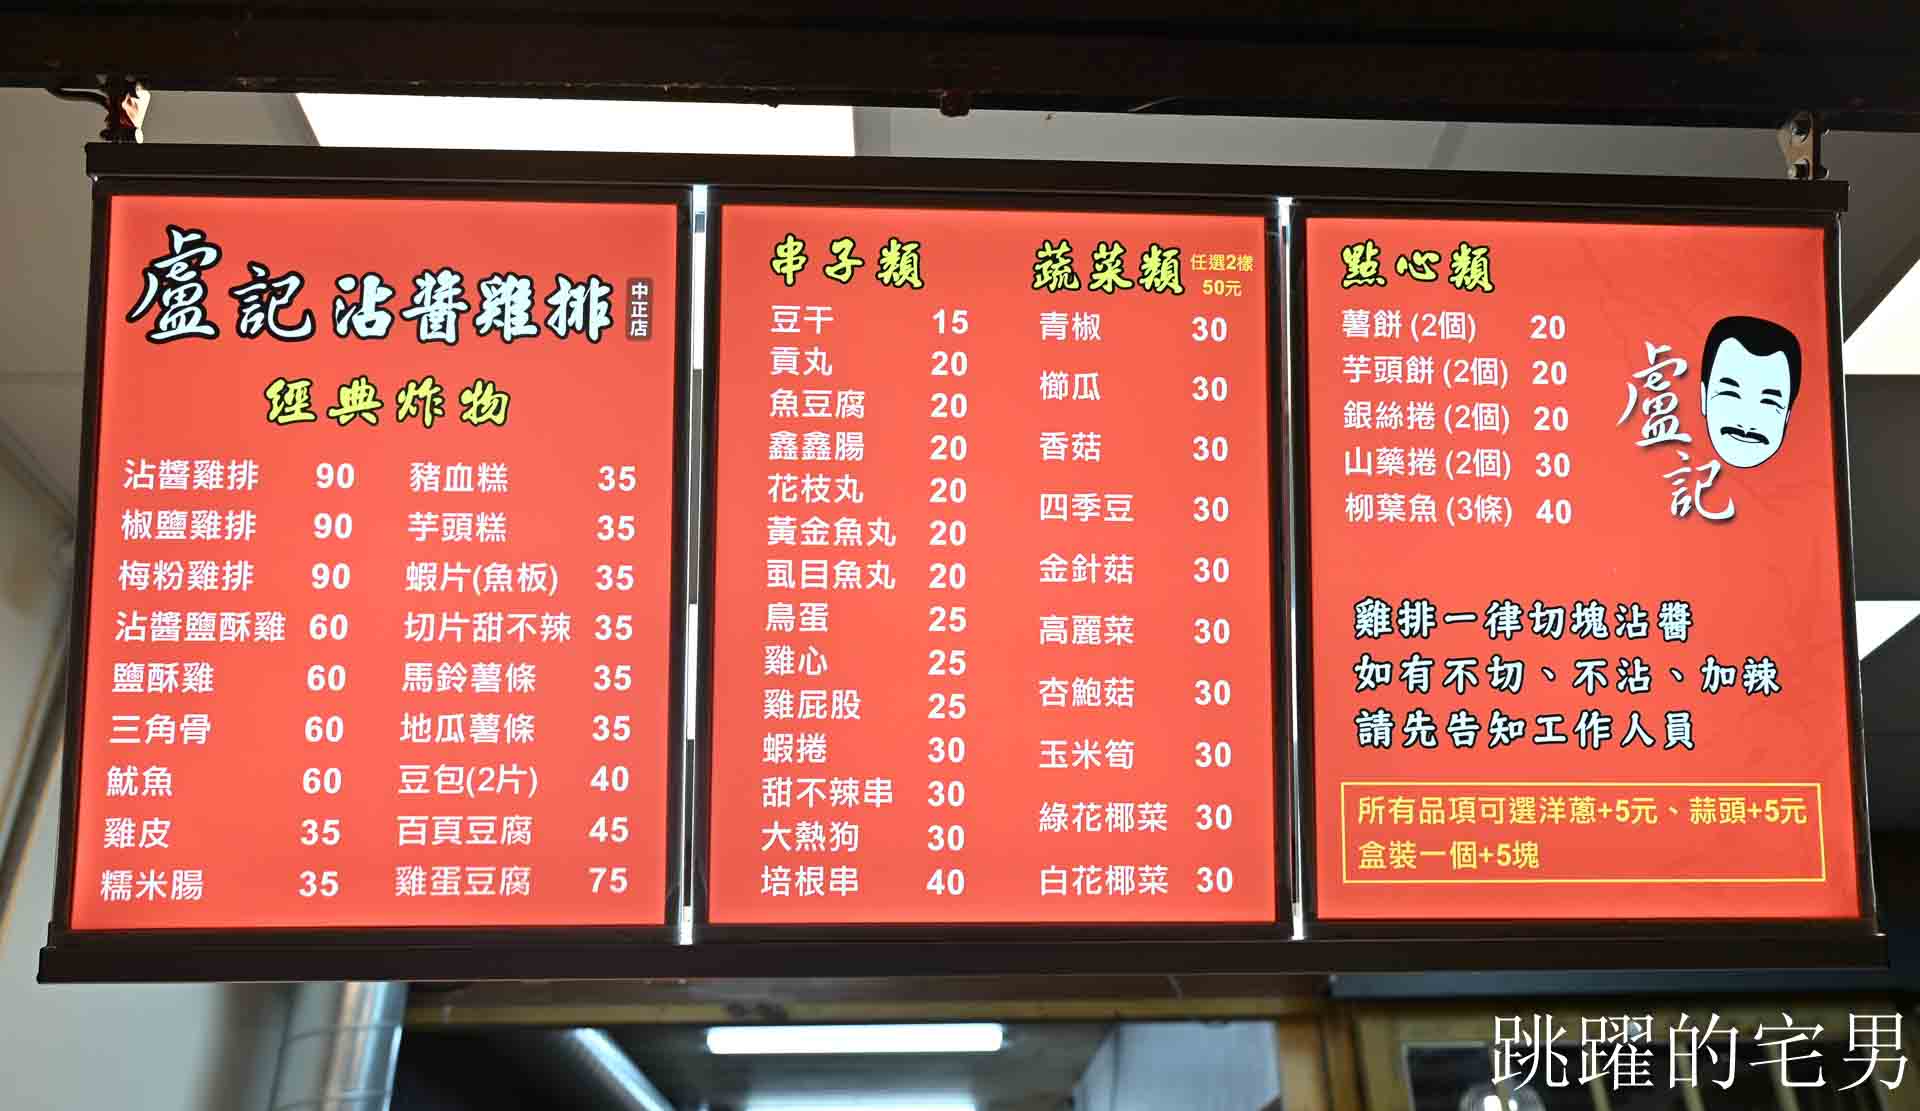 盧記沾醬雞排 中正店
經典炸物
沾醬雞排 90
椒鹽雞排 90
梅粉雞排 90
沾醬鹽酥雞 60
鹽酥雞 60
三角骨 60
魷魚 60
雞皮 35
糯米腸 35
豬血糕 35
芋頭糕 35
蝦片(魚板) 35
切片甜不辣 35
馬鈴薯條 35
地瓜薯條 35
豆包(2片) 40
百頁豆腐 45
雞蛋豆腐 75
串子類
豆干 15
貢丸 20
魚豆腐 20
鑫鑫腸 20
花枝丸 20
黃金魚丸 20
虱目魚丸 20
鳥蛋 25
雞心 25
雞屁股 25
蝦捲 30
甜不辣串 30
大熱狗 30
培根串 40
蔬菜類 任選2樣
50元
青椒 30
櫛瓜 30
香菇 30
四季豆 30
金針菇 30
高麗菜 30
杏鮑菇 30
玉米筍 30
綠花椰菜 30
白花椰菜 30
點心類
薯餅 (2個) 20
芋頭餅 (2個) 20
銀絲捲 (2個) 20
山藥捲 (2個) 30
柳葉魚 (3條) 40
盧記
雞排一律切塊沾醬
如有不切、不沾、加辣
請先告知工作人員
所有品項可選洋蔥+5元、蒜頭+5元
盒裝一個+5塊
跳躍的宅男